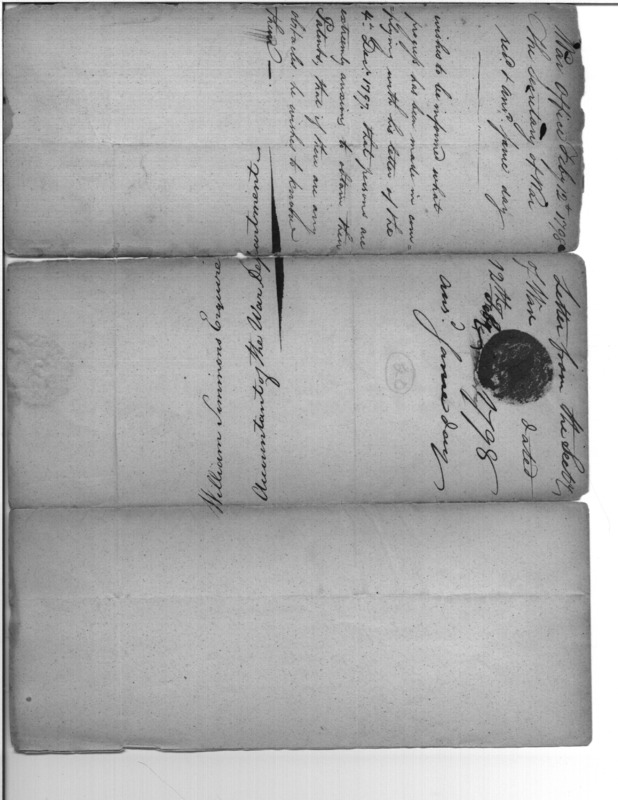 War Office Feby 12th 1798
The Secretary of War
recd. & ansd. same day
wishes to be informed what
progress has been made in com-
plying with his letter of the
4th Decr. 1797 that persons are
extremely anxious to obtain their
Patents, that if there are any
obstacles he wishes to know
them —
Letter from the Secty
of War dated
12th Feby 1798
ansd. same day
William Simmons Esquire
Accountant of the War Department